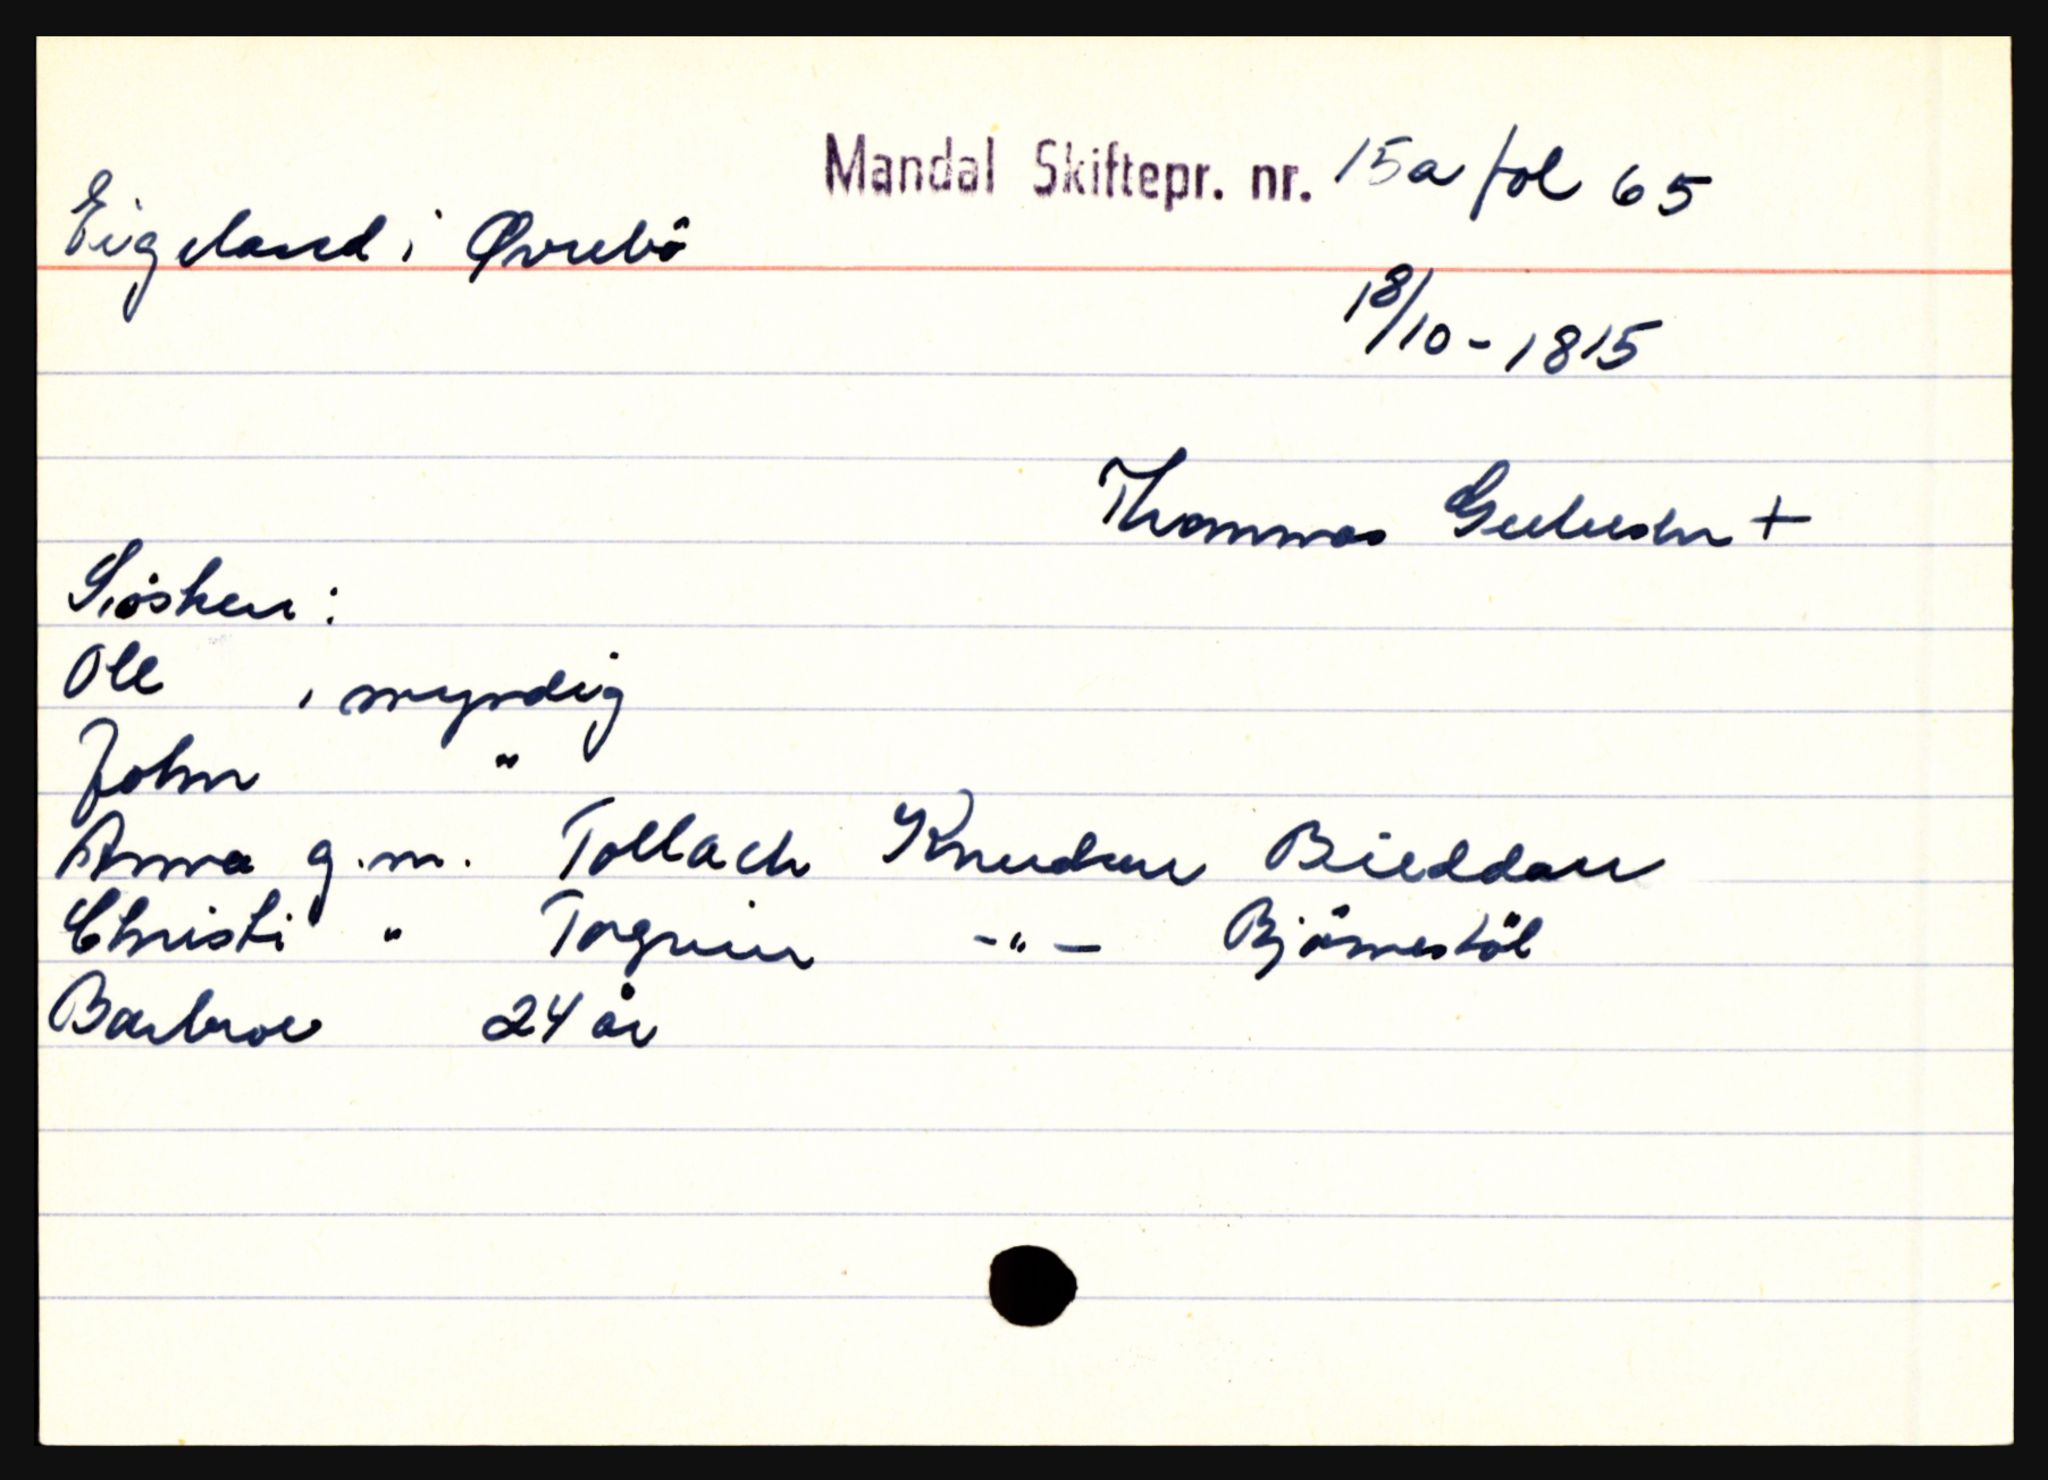 Mandal Skiftepr. nr. 15a fol 65
Eigeland i Øvrebö
18/10 - 1815
Thommas +
Siösken:
Ole , myndig
John "
Anna g.m. Tollach Knudsen Bieddau
Christi " Torgrim - " - Björnestöl
Barbroe 24 år